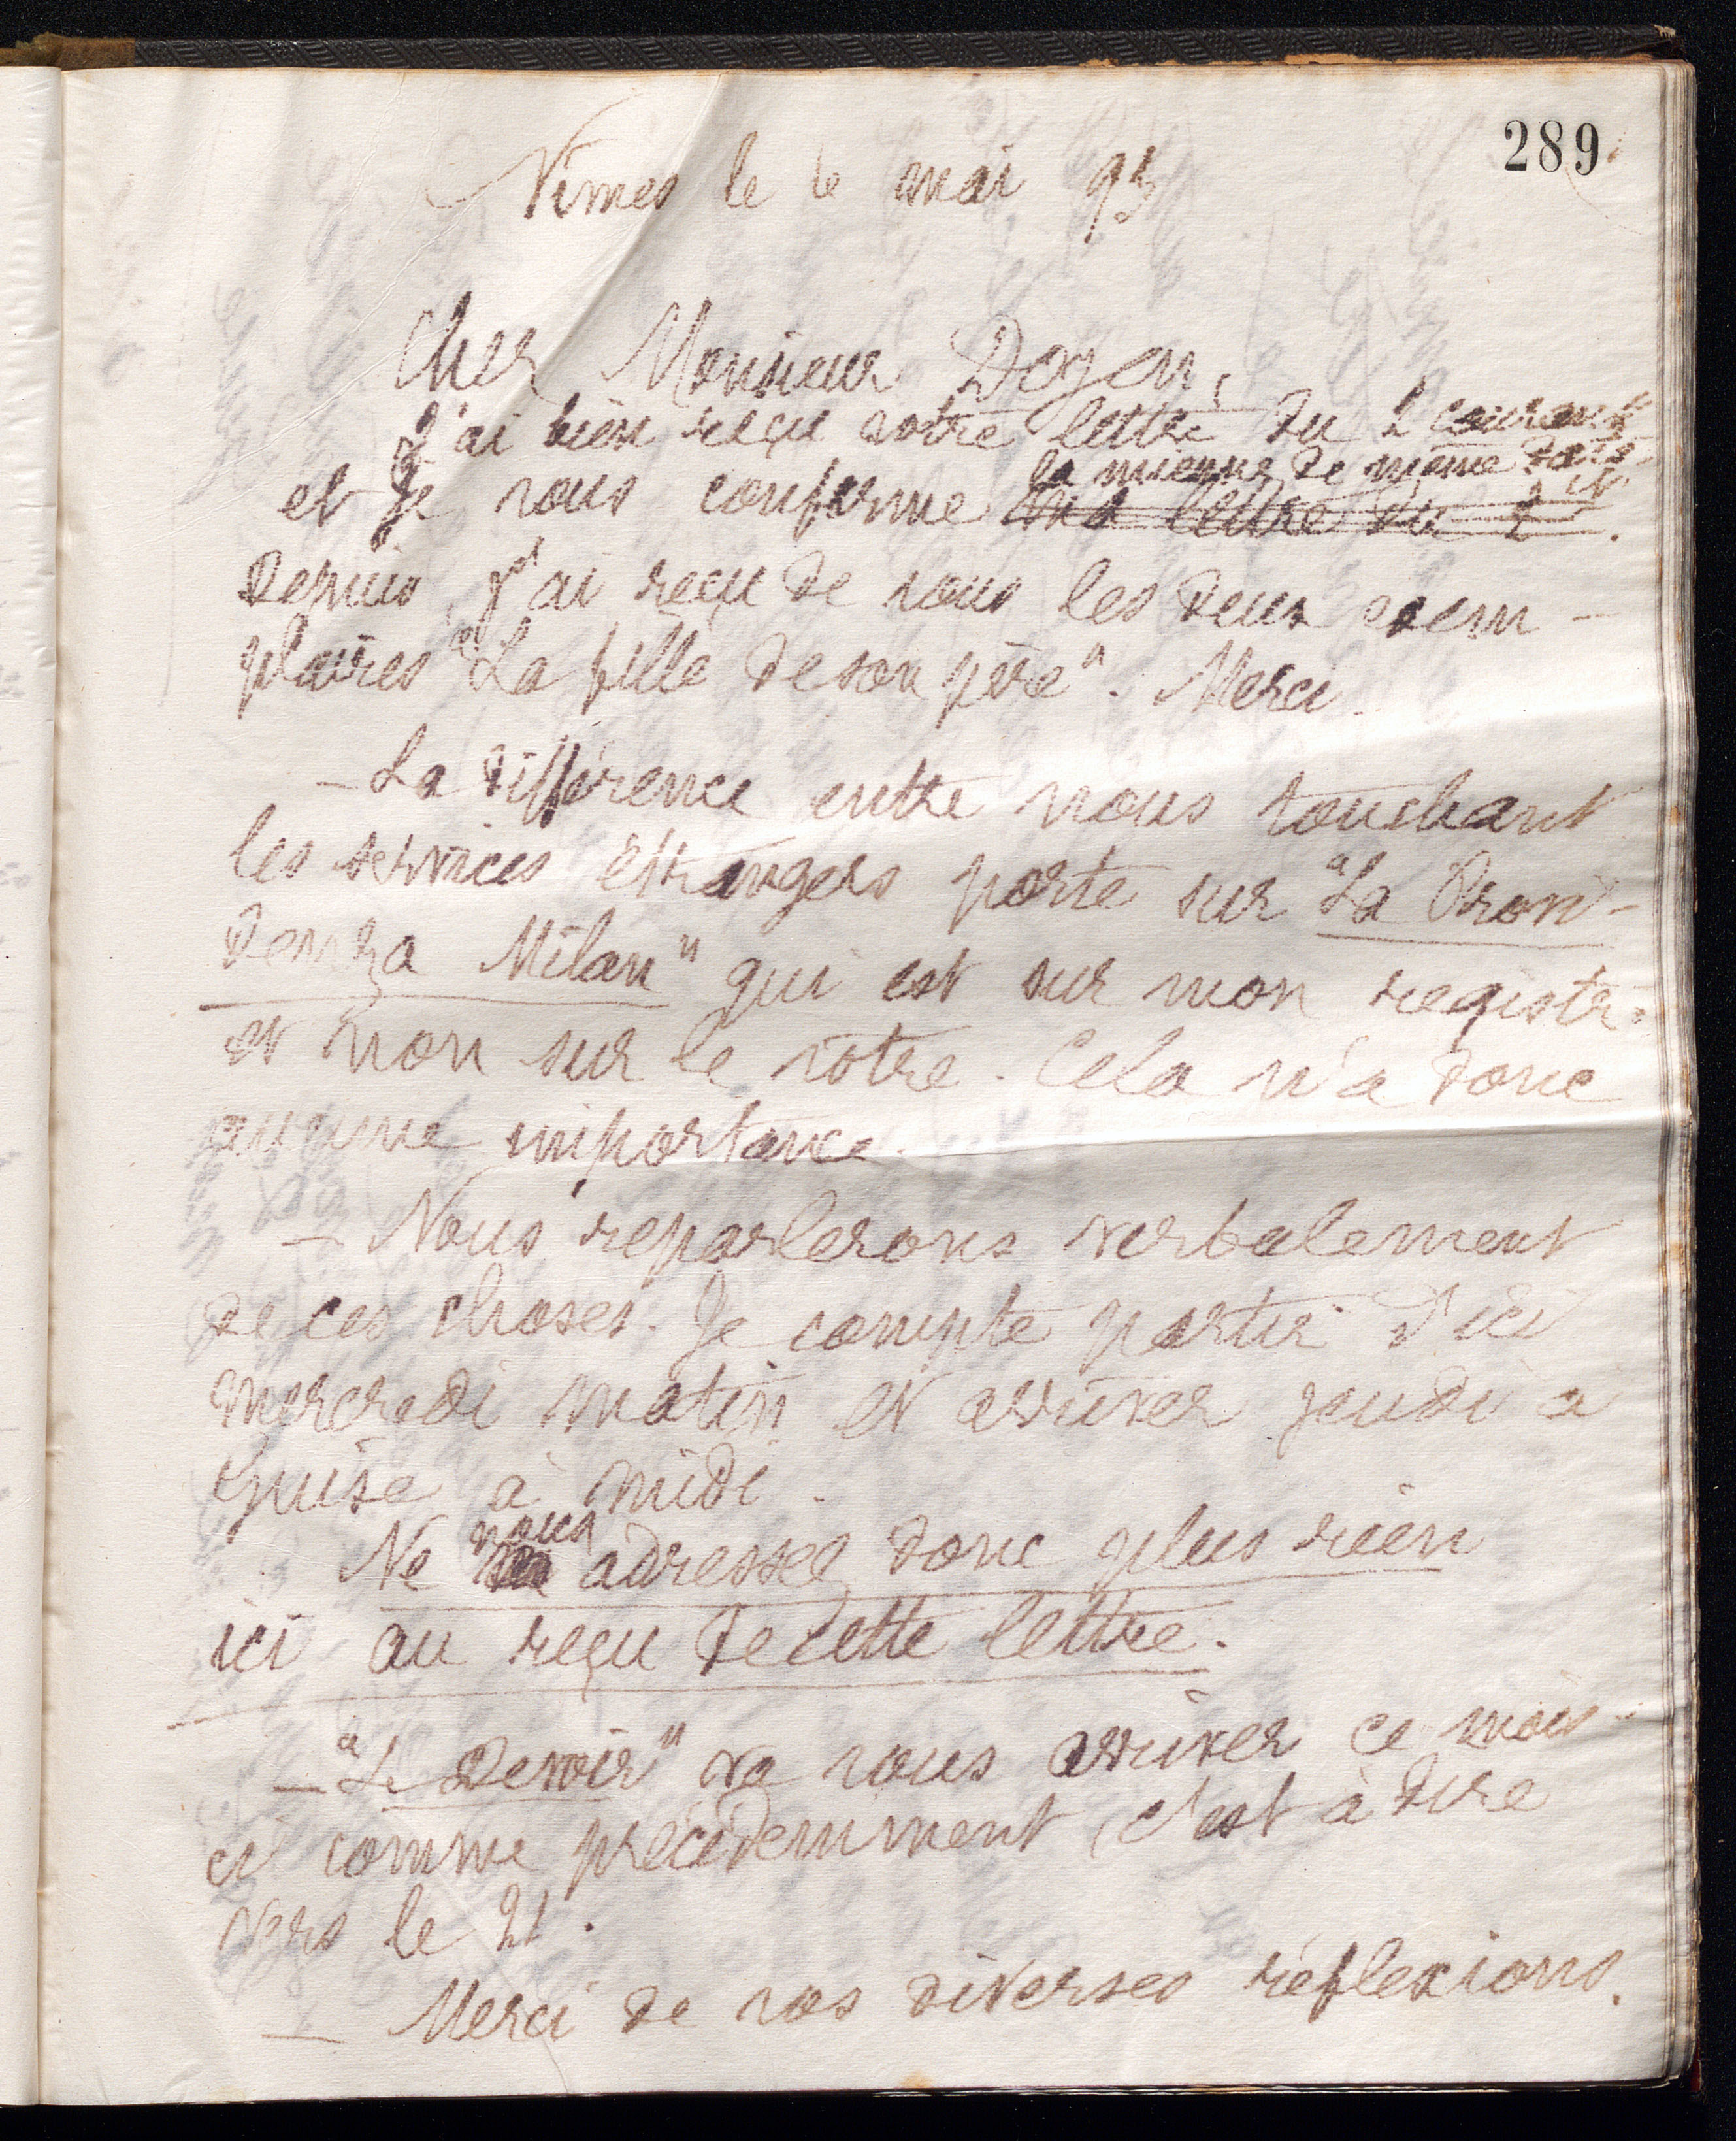 289
Nimes le 6 mai 95
Cher Monsieur Doyen,
J'ai bien reçu votre lettre du 2 courant
la mienne de même date.
et je vous confirme ma lettre du 2 ct.
Depuis, j'ai reçu de vous les deux exem-
plaires "La fille de son père". Merci.
- La différence entre nous touchant
les services étrangers porte sur "La Provi-
denza Milan" qui est sur mon registre
et non sur le vôtre. Cela n'a donc
aucune importance.
- Nous reparlerons verbalement
de ces choses. Je compte partir d'ici
mercredi matin et arriver jeudi à
Guise à midi.
nous
Ne adressez donc plus rien
ici au reçu de cette lettre.
- "Le Devoir" va vous arriver ce mois-
ci comme précédemment, c'est à dire
vers le 21.
- Merci de vos diverses réflexions.